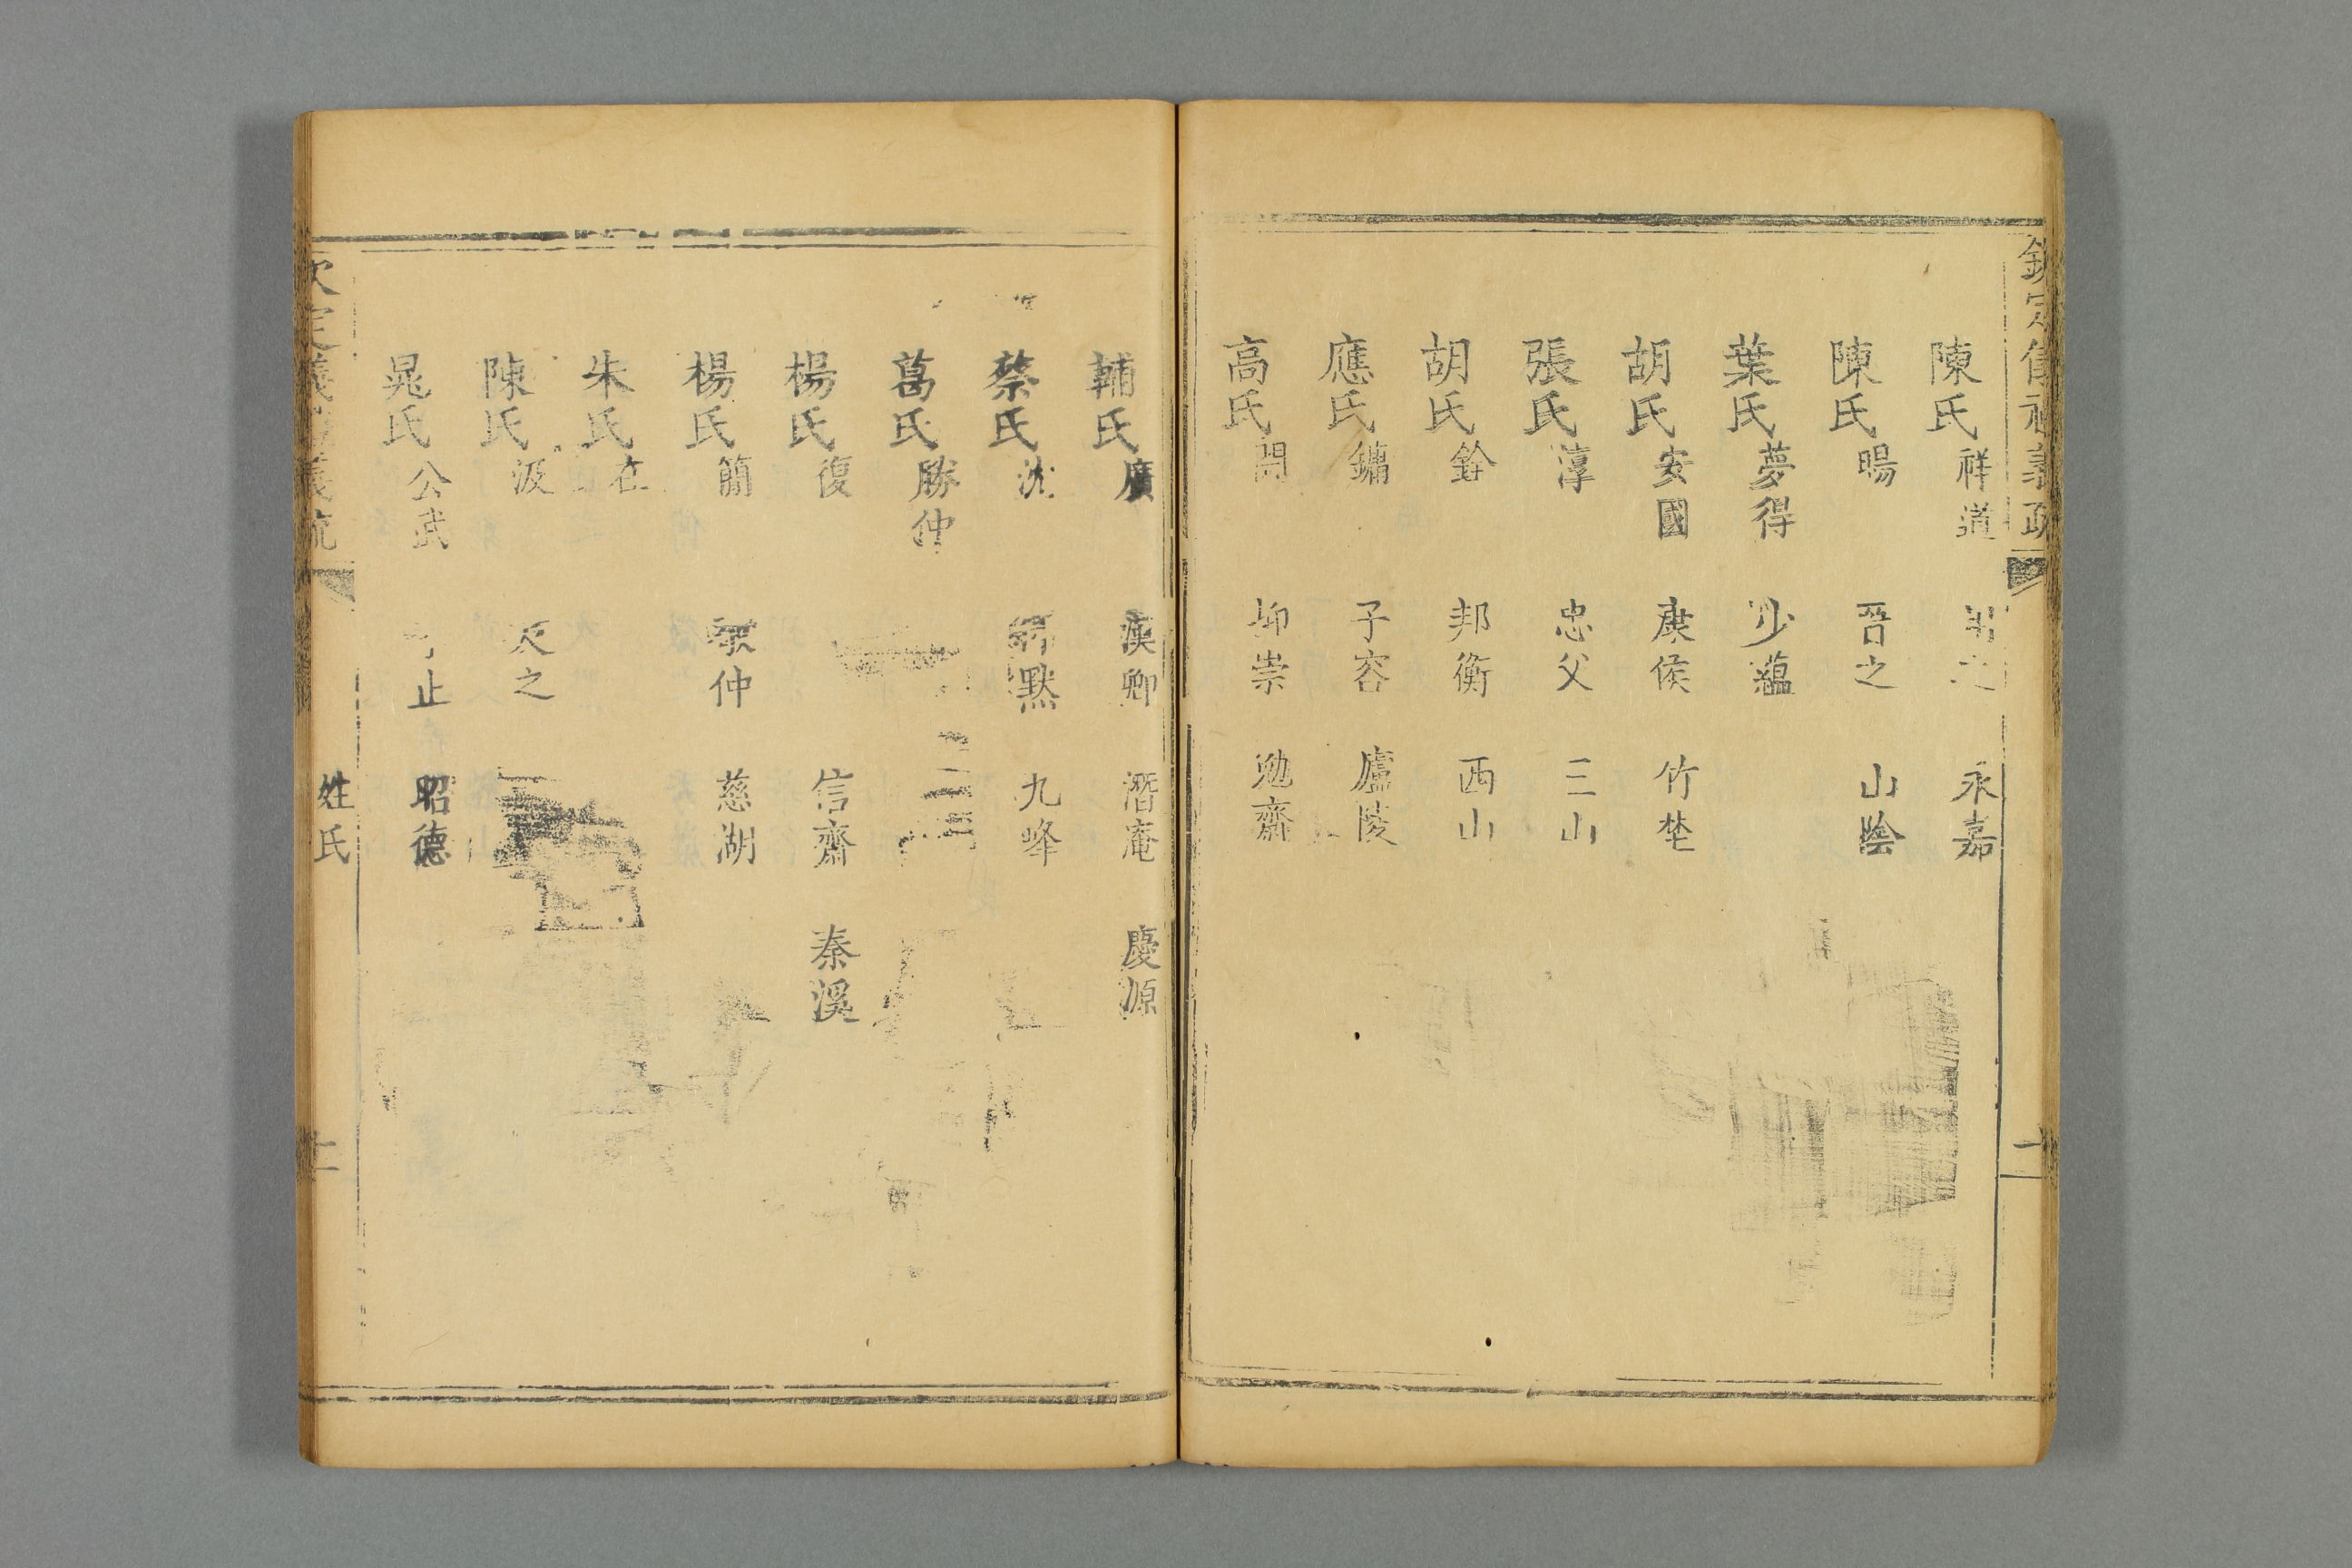 欽定儀禮義疏 一
陳氏祥道 之 永嘉
陳氏暘 晋之 山陰
葉氏夢得 少蘊
胡氏安國 康侯 竹埜
張氏淳 忠父 三山
胡氏銓 邦衡 西山
應氏鏞 子容 廬陵
高氏閌 抑崇 勉齋
輔氏廣 漢卿 潛庵 慶源
蔡氏沈 仲默 九峰
葛氏勝仲
楊氏復 信齋 秦溪
楊氏簡 敬仲 慈湖
朱氏在
陳氏汲 次之
晁氏公武 止 昭德
欽定儀禮義疏 姓氏 二